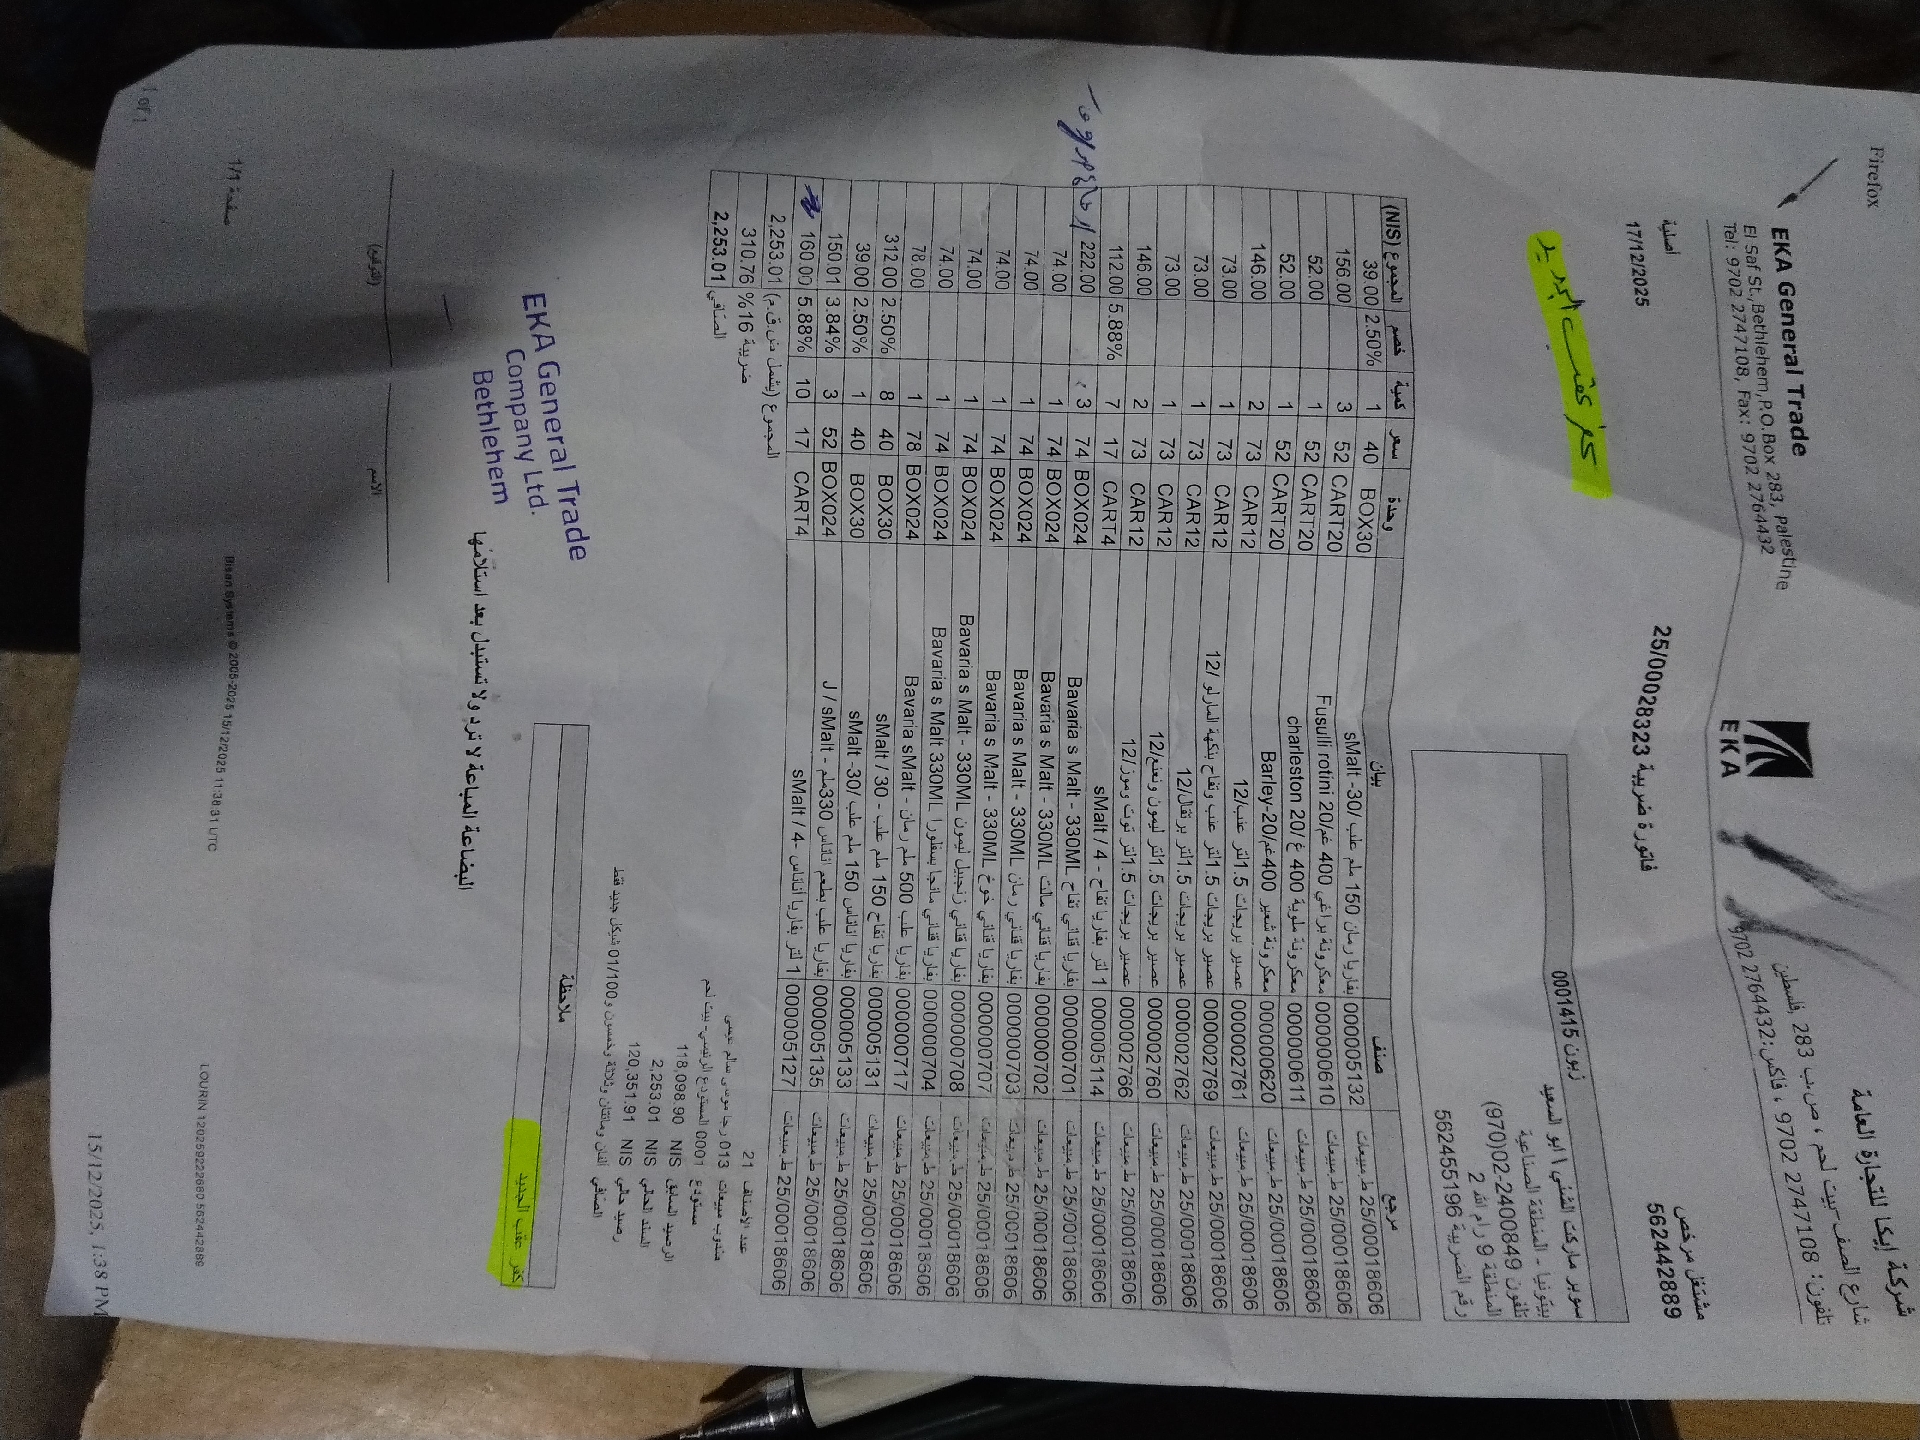 Firefox
EKA General Trade
El Saf St.,Bethlehem,P.O.Box 283, Palestine
Tel: 9702 2747108, Fax: 9702 2764432
EKA
شركة إيكا للتجارة العامة
شارع الصف -بيت لحم ، ص.ب 283 ,فلسطين
تلفون: 2747108 9702 ، فاكس:2764432 9702
اصلية
17/12/2025
فاتورة ضريبية 25/00028323
مشتغل مرخص
562442889
كفر عقب البريد
زبون 0001415
سوبر ماركت الشني \ ابو السعيد
بيتونيا - المنطقة الصناعية
تلفون 2400849-02(970)
المنطقة 9 رام الله 2
رقم الضريبة 562455196
مرجع صنف بيان وحدة سعر كمية خصم المجموع (NIS)
ط.مبيعات 25/00018606 0000005132 بفاريا رمان 150 ملم علب /30- sMalt BOX30 40 1 2.50% 39.00
ط.مبيعات 25/00018606 0000000610 معكرونة براغي 400 غم/20 Fusulli rotini CART20 52 3 156.00
ط.مبيعات 25/00018606 0000000611 معكرونة ملوية 400 غ /20 charleston CART20 52 1 52.00
ط.مبيعات 25/00018606 0000000620 معكرونة شعير 400غم/20-Barley CART20 52 1 52.00
ط.مبيعات 25/00018606 0000002761 عصير بريجات 1.5لتر عنب/12 CAR12 73 2 146.00
ط.مبيعات 25/00018606 0000002769 عصير بريجات 1.5لتر عنب وتفاح بنكهة المارلو /12 CAR12 73 1 73.00
ط.مبيعات 25/00018606 0000002762 عصير بريجات 1.5لتر برتقال/12 CAR12 73 1 73.00
ط.مبيعات 25/00018606 0000002760 عصير بريجات 1.5لتر ليمون ونعنع/12 CAR12 73 1 73.00
ط.مبيعات 25/00018606 0000002766 عصير بريجات 1.5لتر توت وموز/12 CAR12 73 2 146.00
ط.مبيعات 25/00018606 0000005114 1 لتر بفاريا تفاح - 4 / sMalt CART4 17 7 5.88% 112.00
ط.مبيعات 25/00018606 0000000701 بفاريا قناني تفاح Bavaria s Malt - 330ML BOX024 74 3 222.00
ط.مبيعات 25/00018606 0000000702 بفاريا قناني مالت Bavaria s Malt - 330ML BOX024 74 1 74.00
ط.مبيعات 25/00018606 0000000703 بفاريا قناني رمان Bavaria s Malt - 330ML BOX024 74 1 74.00
ط.مبيعات 25/00018606 0000000707 بفاريا قناني خوخ Bavaria s Malt - 330ML BOX024 74 1 74.00
ط.مبيعات 25/00018606 0000000708 بفاريا قناني زنجبيل ليمون Bavaria s Malt - 330ML BOX024 74 1 74.00
ط.مبيعات 25/00018606 0000000704 بفاريا قناني مانجا بسفلورا Bavaria s Malt 330ML BOX024 74 1 74.00
ط.مبيعات 25/00018606 0000000717 بفاريا علب 500 ملم رمان - Bavaria sMalt BOX024 78 1 78.00
ط.مبيعات 25/00018606 0000005131 بفاريا تفاح 150 ملم علب - 30 / sMalt BOX30 40 8 2.50% 312.00
ط.مبيعات 25/00018606 0000005133 بفاريا اناناس 150 ملم علب /30- sMalt BOX30 40 1 2.50% 39.00
ط.مبيعات 25/00018606 0000005135 بفاريا علب بطعم اناناس 330ملم - J / sMalt BOX024 52 3 3.84% 150.01
ط.مبيعات 25/00018606 0000005127 1 لتر بفاريا اناناس -4 / sMalt CART4 17 10 5.88% 160.00
المجموع (يشمل ض.ق.م) 2,253.01
ضريبة 16% 310.76
الصافي 2,253.01
عدد الاصناف 21
مندوب مبيعات 013 رضا موسى سالم عيسى
مستودع 0001 المستودع الرئيسي- بيت لحم
الرصيد السابق NIS 118,098.90
السند الحالي NIS 2,253.01
رصيد حالي NIS 120,351.91
الصافي الفان ومائتان وثلاثة وخمسون و01/100 شيكل جديد فقط
ملاحظة
كفر عقب الجديد
EKA General Trade
Company Ltd.
Bethlehem
البضاعة المباعة لا ترد ولا تستبدل بعد استلامها
الاسم
(التوقيع)
صفحة 1/1
Bisan Systems © 2005-2025 15/12/2025 11:38:31 UTC
LOURIN 1202592226​80 562442889
1 of 1
15/12/2025, 1:38 PM